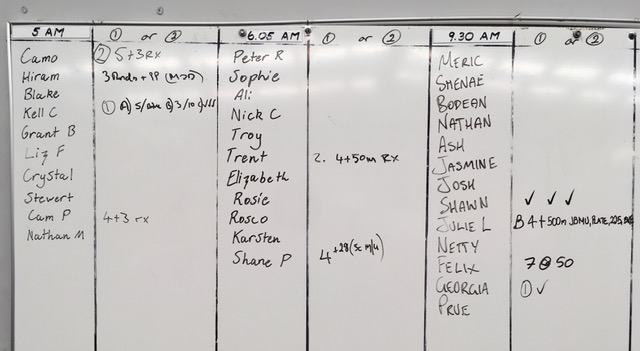 5 AM ① or ② 6.05 AM ① or ② 9.30 AM ① or ②
Camo ② 5+3 Rx Peter R MERIC
Hiram 3 Rnds + PP Sophie SHENAE
Blake Ali BODEAN
Kell C ① A) Nick C NATHAN
Grant B Troy ASH
Liz F Trent 2. 4+50m Rx JASMINE
Crystal Elizabeth JOSH
Stewert Rosie SHAWN ✓ ✓ ✓
Cam P 4+3 rx Rosco JULIE L B 4+500m
Nathan M Karsten NETTY
Shane P 4 +28 (Sc m/u) FELIX 7 @ 50
GEORGIA ① ✓
PRUE